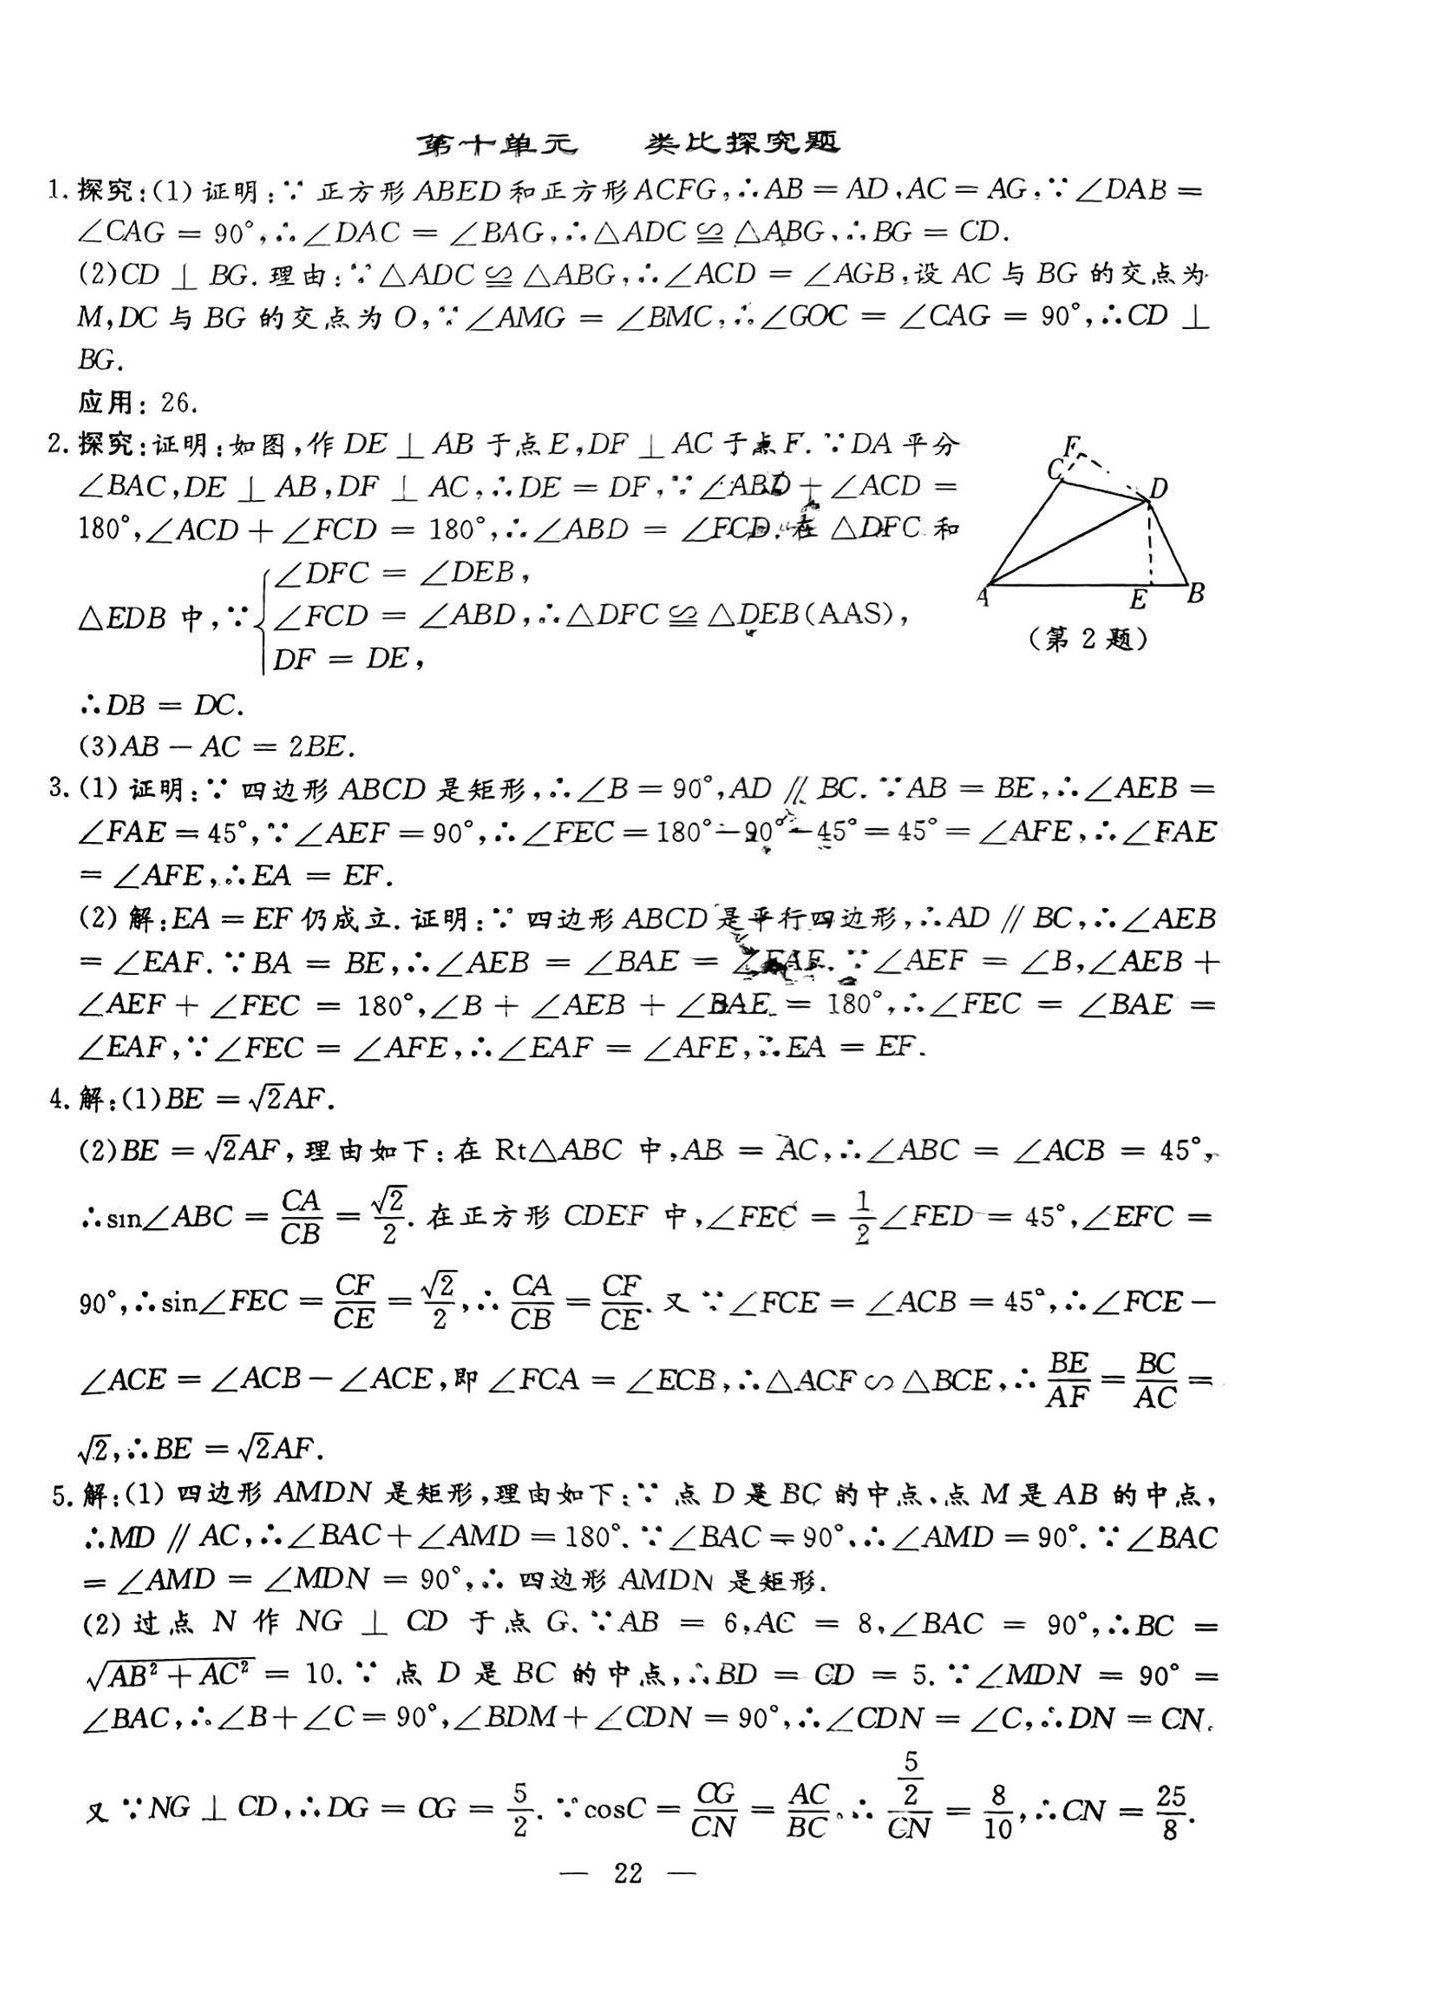 第十单元 类比探究题
1. 探究:(1) 证明:∵ 正方形 ABED 和正方形 ACFG,∴AB = AD,AC = AG,∵ ∠DAB =
∠CAG = 90°,∴∠DAC = ∠BAG,∴△ADC ≌ △ABG,∴BG = CD.
(2)CD ⊥ BG. 理由:∵ △ADC ≌ △ABG,∴∠ACD = ∠AGB,设 AC 与 BG 的交点为
M,DC 与 BG 的交点为 O,∵ ∠AMG = ∠BMC,∴∠GOC = ∠CAG = 90°,∴CD ⊥
BG.
应用: 26.
2. 探究:证明:如图,作 DE ⊥ AB 于点 E,DF ⊥ AC 于点 F. ∵DA 平分
∠BAC,DE ⊥ AB,DF ⊥ AC,∴DE = DF,∵ ∠ABD + ∠ACD =
180°,∠ACD + ∠FCD = 180°,∴∠ABD = ∠FCD. 在 △DFC 和
△EDB 中,∵{∠DFC = ∠DEB,
∠FCD = ∠ABD,∴△DFC ≌ △DEB(AAS),
DF = DE,
∴DB = DC.
(3)AB − AC = 2BE.
F
C
D
A
E
B
(第 2 题)
3. (1) 证明:∵ 四边形 ABCD 是矩形,∴∠B = 90°,AD ∥ BC. ∵AB = BE,∴∠AEB =
∠FAE = 45°,∵ ∠AEF = 90°,∴∠FEC = 180° − 90° − 45° = 45° = ∠AFE,∴∠FAE
= ∠AFE,∴EA = EF.
(2) 解:EA = EF 仍成立. 证明:∵ 四边形 ABCD 是平行四边形,∴AD ∥ BC,∴∠AEB
= ∠EAF. ∵BA = BE,∴∠AEB = ∠BAE = ∠EAF. ∵ ∠AEF = ∠B,∠AEB +
∠AEF + ∠FEC = 180°,∠B + ∠AEB + ∠BAE = 180°,∴∠FEC = ∠BAE =
∠EAF,∵∠FEC = ∠AFE,∴∠EAF = ∠AFE,∴EA = EF.
4. 解:(1)BE = √2AF.
(2)BE = √2AF,理由如下:在 Rt△ABC 中,AB = AC,∴∠ABC = ∠ACB = 45°,
∴sin∠ABC = CA/CB = √2/2. 在正方形 CDEF 中,∠FEC = 1/2∠FED = 45°,∠EFC =
90°,∴sin∠FEC = CF/CE = √2/2,∴ CA/CB = CF/CE. 又 ∵∠FCE = ∠ACB = 45°,∴∠FCE −
∠ACE = ∠ACB − ∠ACE,即 ∠FCA = ∠ECB,∴△ACF ∽ △BCE,∴ BE/AF = BC/AC =
√2,∴BE = √2AF.
5. 解:(1) 四边形 AMDN 是矩形,理由如下:∵ 点 D 是 BC 的中点、点 M 是 AB 的中点,
∴MD ∥ AC,∴∠BAC + ∠AMD = 180°. ∵∠BAC = 90°,∴∠AMD = 90°. ∵∠BAC
= ∠AMD = ∠MDN = 90°,∴ 四边形 AMDN 是矩形.
(2) 过点 N 作 NG ⊥ CD 于点 G. ∵AB = 6,AC = 8,∠BAC = 90°,∴BC =
√(AB² + AC²) = 10. ∵ 点 D 是 BC 的中点,∴BD = CD = 5. ∵∠MDN = 90° =
∠BAC,∴∠B + ∠C = 90°,∠BDM + ∠CDN = 90°,∴∠CDN = ∠C,∴DN = CN.
又 ∵NG ⊥ CD,∴DG = CG = 5/2. ∵cosC = CG/CN = AC/BC,∴ (5/2)/CN = 8/10,∴CN = 25/8.
— 22 —